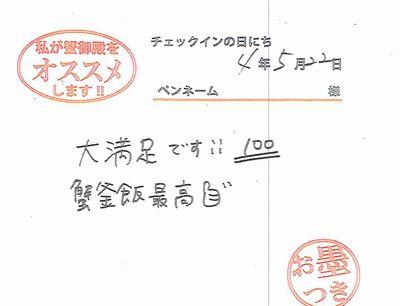 私が蟹御殿を
オススメ
します!!
チェックインの日にち
4年5月22日
ペンネーム 様
大満足です!! 100
蟹釜飯最高
お墨
つき